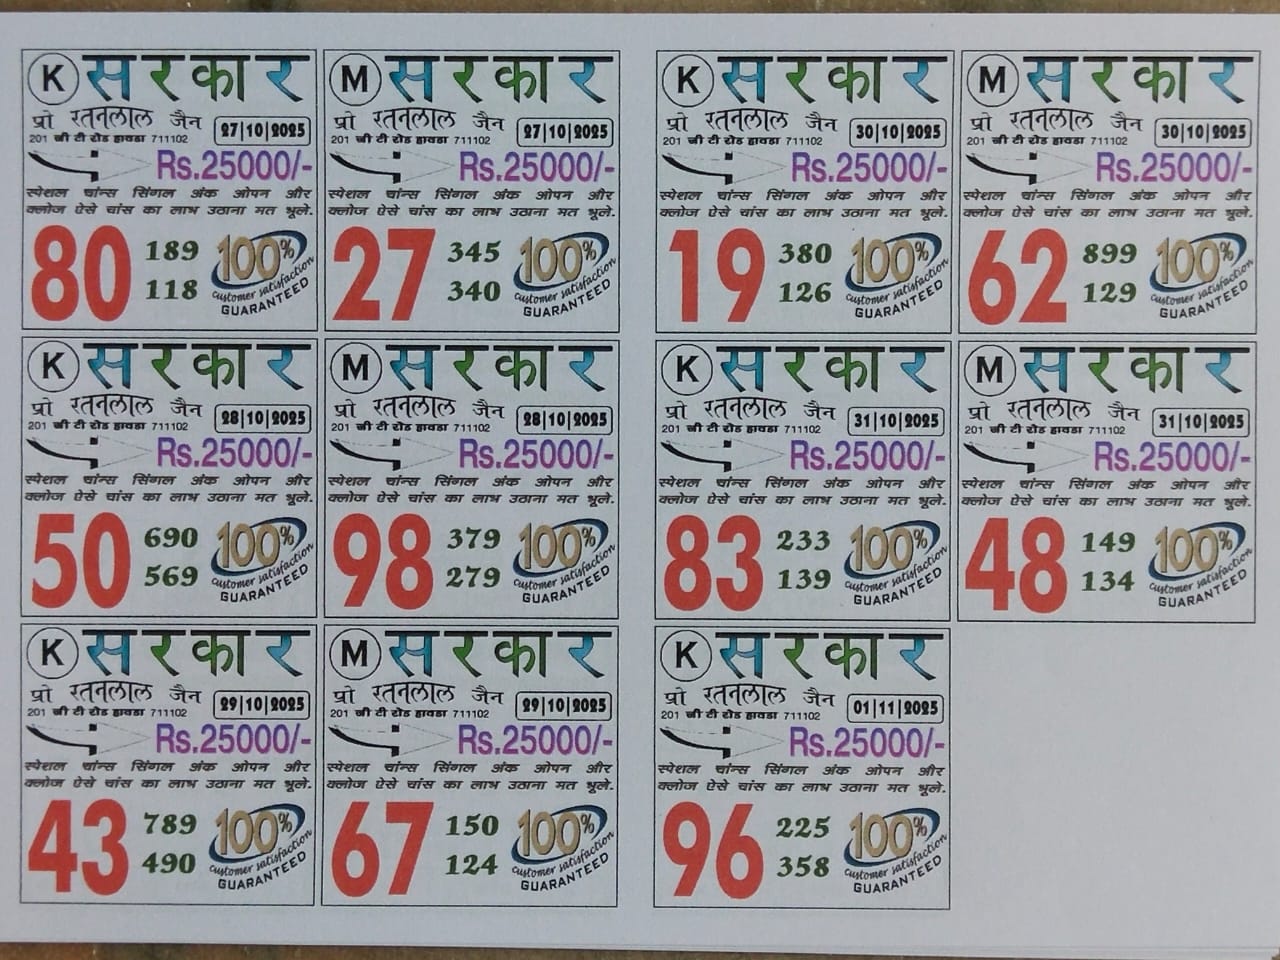 K सरकार
प्रो रतनलाल जैन
201 जी टी रोड हावडा 711102
27|10|2025
Rs.25000/-
स्पेशल चांन्स सिंगल अंक ओपन और
क्लोज ऐसे चांस का लाभ उठाना मत भूले.
80 189
118
100%
customer satisfaction
GUARANTEED
M सरकार
प्रो रतनलाल जैन
201 जी टी रोड हावडा 711102
27|10|2025
Rs.25000/-
स्पेशल चांन्स सिंगल अंक ओपन और
क्लोज ऐसे चांस का लाभ उठाना मत भूले.
27 345
340
100%
customer satisfaction
GUARANTEED
K सरकार
प्रो रतनलाल जैन
201 जी टी रोड हावडा 711102
30|10|2025
Rs.25000/-
स्पेशल चांन्स सिंगल अंक ओपन और
क्लोज ऐसे चांस का लाभ उठाना मत भूले.
19 380
126
100%
customer satisfaction
GUARANTEED
M सरकार
प्रो रतनलाल जैन
201 जी टी रोड हावडा 711102
30|10|2025
Rs.25000/-
स्पेशल चांन्स सिंगल अंक ओपन और
क्लोज ऐसे चांस का लाभ उठाना मत भूले.
62 899
129
100%
customer satisfaction
GUARANTEED
K सरकार
प्रो रतनलाल जैन
201 जी टी रोड हावडा 711102
28|10|2025
Rs.25000/-
स्पेशल चांन्स सिंगल अंक ओपन और
क्लोज ऐसे चांस का लाभ उठाना मत भूले.
50 690
569
100%
customer satisfaction
GUARANTEED
M सरकार
प्रो रतनलाल जैन
201 जी टी रोड हावडा 711102
28|10|2025
Rs.25000/-
स्पेशल चांन्स सिंगल अंक ओपन और
क्लोज ऐसे चांस का लाभ उठाना मत भूले.
98 379
279
100%
customer satisfaction
GUARANTEED
K सरकार
प्रो रतनलाल जैन
201 जी टी रोड हावडा 711102
31|10|2025
Rs.25000/-
स्पेशल चांन्स सिंगल अंक ओपन और
क्लोज ऐसे चांस का लाभ उठाना मत भूले.
83 233
139
100%
customer satisfaction
GUARANTEED
M सरकार
प्रो रतनलाल जैन
201 जी टी रोड हावडा 711102
31|10|2025
Rs.25000/-
स्पेशल चांन्स सिंगल अंक ओपन और
क्लोज ऐसे चांस का लाभ उठाना मत भूले.
48 149
134
100%
customer satisfaction
GUARANTEED
K सरकार
प्रो रतनलाल जैन
201 जी टी रोड हावडा 711102
29|10|2025
Rs.25000/-
स्पेशल चांन्स सिंगल अंक ओपन और
क्लोज ऐसे चांस का लाभ उठाना मत भूले.
43 789
490
100%
customer satisfaction
GUARANTEED
M सरकार
प्रो रतनलाल जैन
201 जी टी रोड हावडा 711102
29|10|2025
Rs.25000/-
स्पेशल चांन्स सिंगल अंक ओपन और
क्लोज ऐसे चांस का लाभ उठाना मत भूले.
67 150
124
100%
customer satisfaction
GUARANTEED
K सरकार
प्रो रतनलाल जैन
201 जी टी रोड हावडा 711102
01|11|2025
Rs.25000/-
स्पेशल चांन्स सिंगल अंक ओपन और
क्लोज ऐसे चांस का लाभ उठाना मत भूले.
96 225
358
100%
customer satisfaction
GUARANTEED